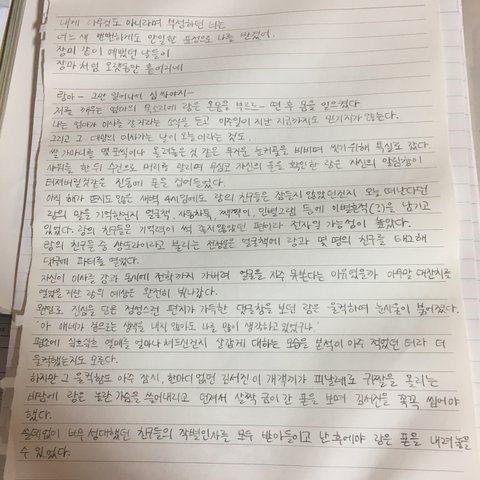 내게 아무것도 아니라며 부정하던 나는
어느새 뻔뻔하게도 안일한 표정으로 나를 반겼어.
장미 같이 예뻤던 날들이
장마처럼 오랫동안 흩어지네
람아- 그만 일어나서 짐 싸야지-
저를 깨우는 엄마의 목소리에 람은 온몸을 부르르- 떤 후 몸을 일으켰다
나는 엄마가 이사를 갈 거라는 소식을 듣고 이주일이 지난 지금까지도 믿기지가 않는다.
그리고 그 대망의 이사가는 날이 오늘이라는 것도
쌀 가마니를 몇 포씩이나 올려놓은 것 같은 무거운 눈꺼풀을 비비며 씻기위해 욕실로 갔다.
샤워를 한 뒤 수건으로 머리를 말리며 무심코 자신의 폰을 확인한 람은 자신의 알림창이
터져버릴것같은 진동에 폰을 집어들었다.
아직 해가 뜨지도 않은 새벽 6시임에도 람의 친구들은 잠들지 않았던건지 오늘 떠난다던
람의 말을 기억한건지 얼굴책 사용하듯, 짹짹이, 인별그램 등에 이별흔적(?)을 남기고
있었다. 람의 친구들은 기억력이 썩 좋지 않았던 편이라 전자일 가능성이 높았다.
람의 친구들 중 상또라이라고 불리는 전정운은 얼굴책에 람과 몇 명의 친구를 태그해
댓글에 파티를 열었다.
자신이 이사를 감과 동시에 전학까지 가버려 얼굴을 자주 못본다는 이유였을까 아무말 대잔치를
열었을거란 람의 예상은 완전히 빗나갔다.
완벽히 진심을 담은 장문스런 편지가 가득한 댓글창을 보던 람은 울컥하며 눈시울이 붉어졌다.
'아 얘네가 겉으로는 생색을 내지 않아도 나를 많이 생각하고 있었구나.'
평소에 싫증 열매를 얼마나 처드신건지 살갑게 대하는 모습을 본적이 아주 적었던 터라 더
울컥했는지도 모른다.
하지만 그 울컥함도 아주 잠시, 한마디 없던 김서진이 개객끼가 피날레로 귀짤을 올리는
바람에 람은 놀란 가슴을 쓸어내리고 던져서 살짝 금이 간 폰을 보며 김서진을 꼭꼭 씹어야
했다.
쓸데없이 너무 성대했던 친구들의 작별인사를 모두 받아들이고 난 후에야 람은 폰을 내려놓을
수 있었다.